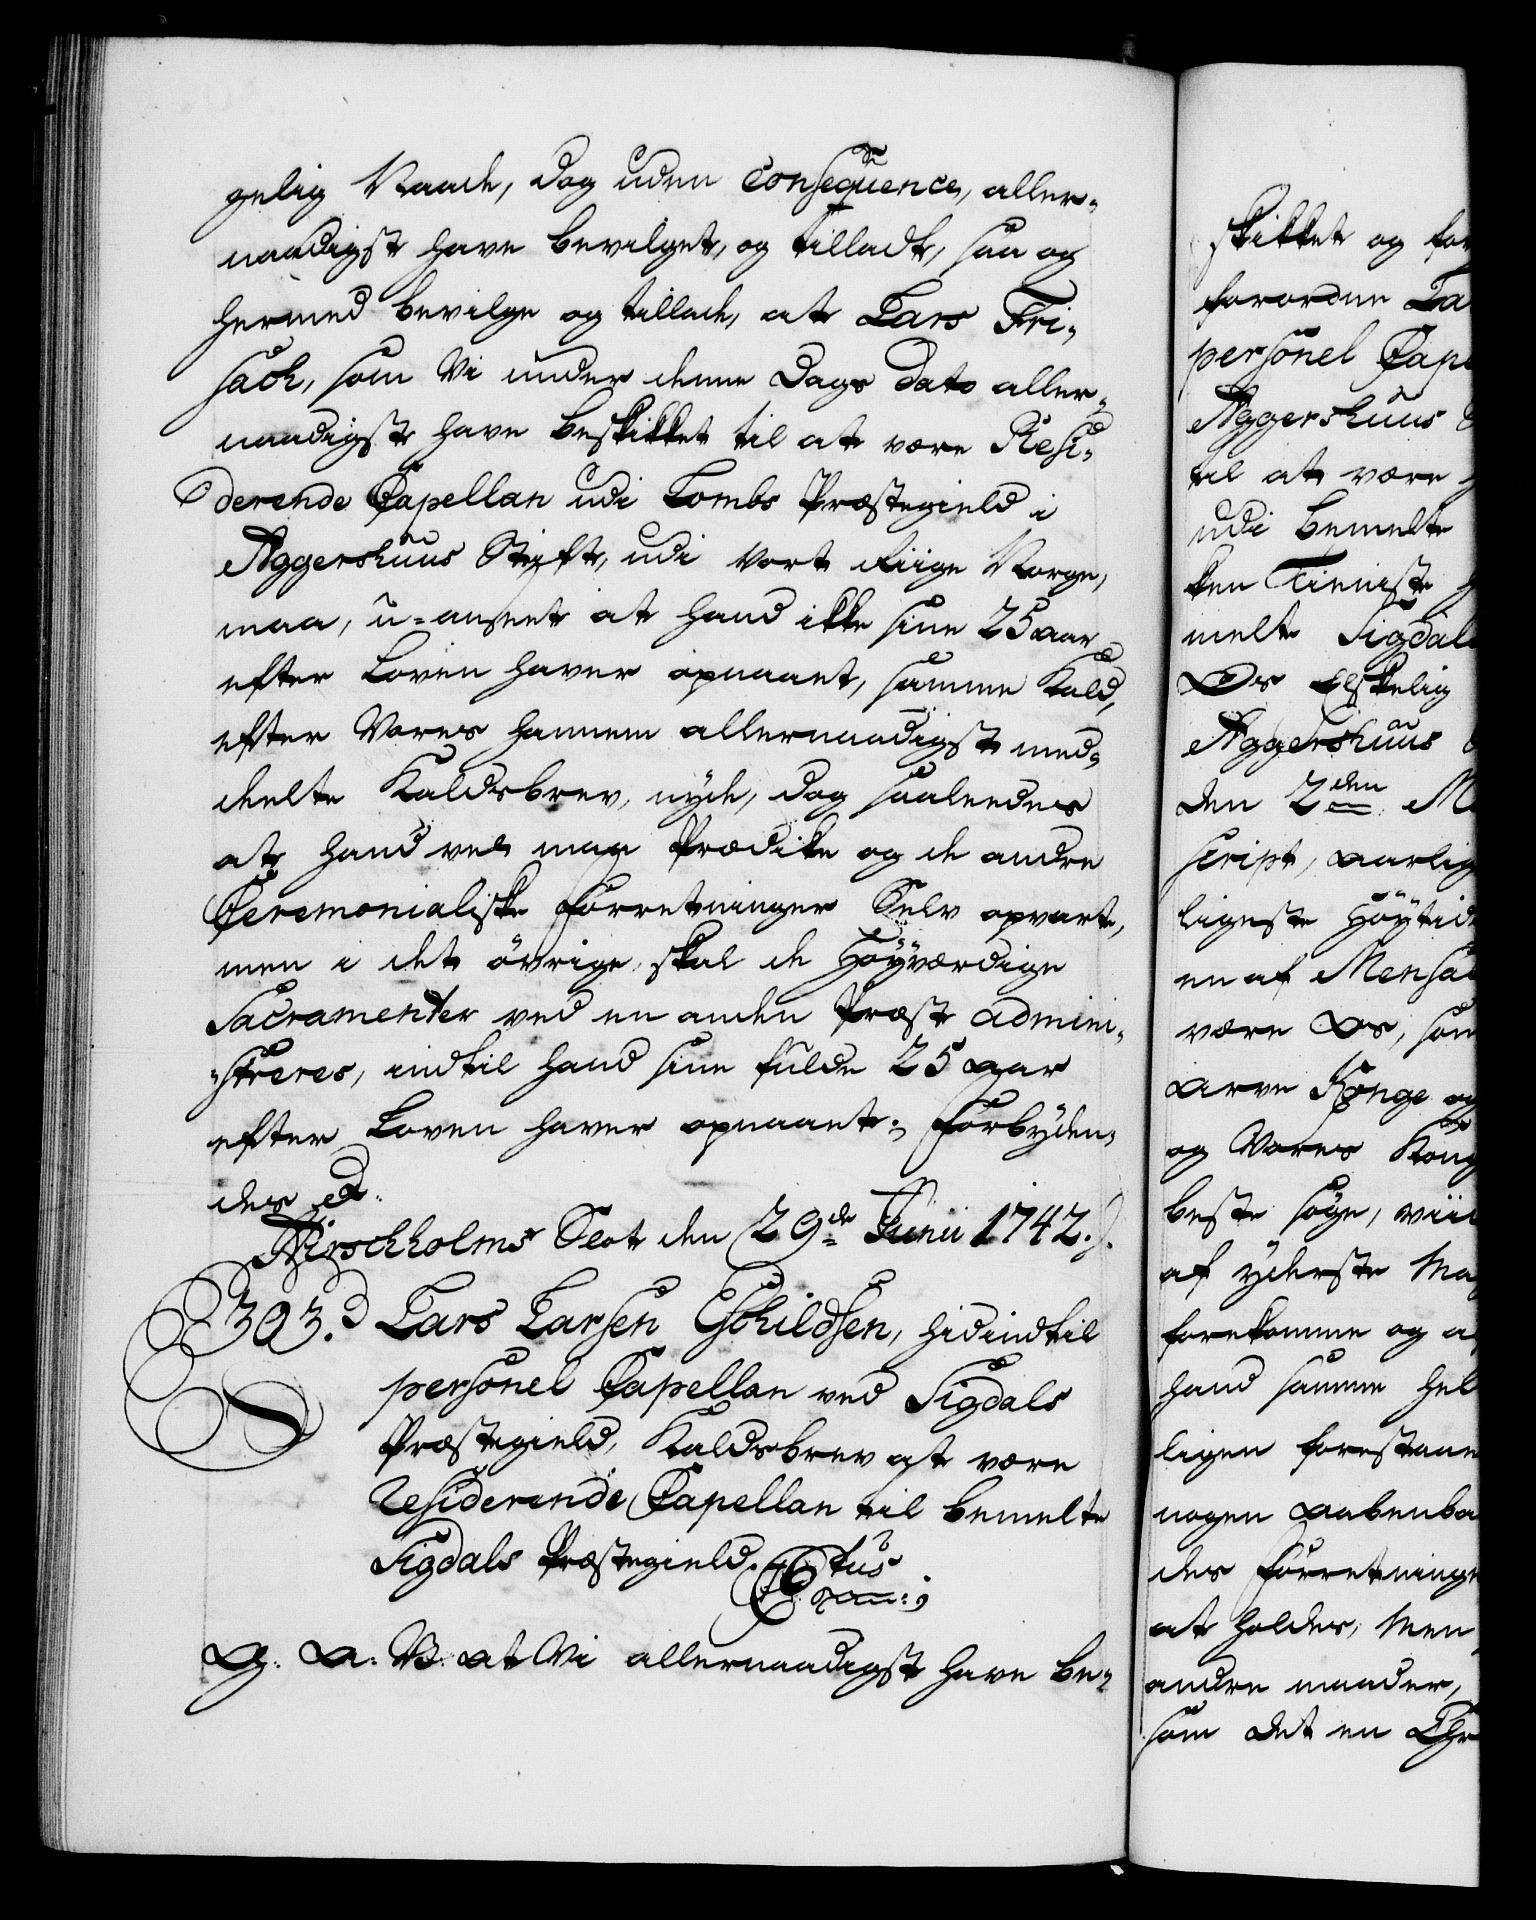 gelig Naade, dog uden Consequence, aller-
naadigst have bevilget, og tilladt, saa og
hermed bevilge og tillade, at Lars Fri-
sach, som Vi under denne Dags Dato aller-
naadigst have beskikket til at være Resi-
derende Capellan udi Lombs Præstegield i
Aggershuus Stift, udi vort Riige Norge,
maa, u-anseet at hand ikke sine 25 aar
efter Loven haver opnaaet, samme Kald,
efter Vores hannem allernaadigst med-
deelte Kaldsbrev, nyde, dog saaleedes
at hand vel maa Prædike og de andre
Ceremonialiske Forretninger Selv opvarte,
men i det övrige, skal de Höyværdige
Sacramenter ved en anden Præst admini-
-streres, indtil hand sine fulde 25 aar
efter Loven haver opnaaet; Forbyden-
des &.
Hirschholms Slot den 29de Junii 1742.
303. Lars Larsen Eschildsen, hidindtil
personel Capellan ved Sigdals
Præstegield, Kaldsbrev at være
Residerende Capellan til bemelte
Sigdals Præstegield.
G. A. V. at Vi allernaadigst have be-
skikket og for
forordne La
personel Cape
Aggershuus
til at være
udi bemelte
ken Tieniste
melte Sigdal
Os Elskelig
Aggershuus
den 2den M
script, aarlig
ligeste Höytid
en af Mensal
være Os, som
Arve Konge og
og Vores Kong
beste söge, viid
af yderste Ma
forekomme og a
hand samme hel
ligen forestaae
nogen aabenba
des Forretninge
at holdes, Men
andre maader,
som det en Chr